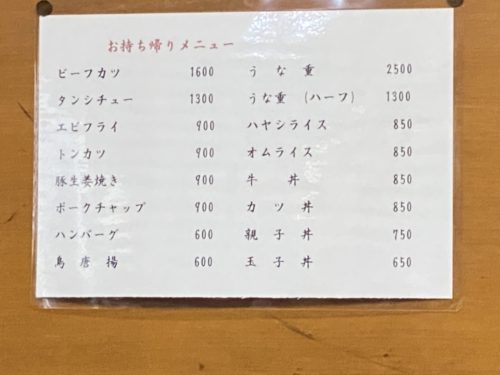 お持ち帰りメニュー
ビーフカツ 1600 うな重 2500
タンシチュー 1300 うな重 (ハーフ) 1300
エビフライ 900 ハヤシライス 850
トンカツ 900 オムライス 850
豚生姜焼き 900 牛丼 850
ポークチャップ 900 カツ丼 850
ハンバーグ 600 親子丼 750
鳥唐揚 600 玉子丼 650